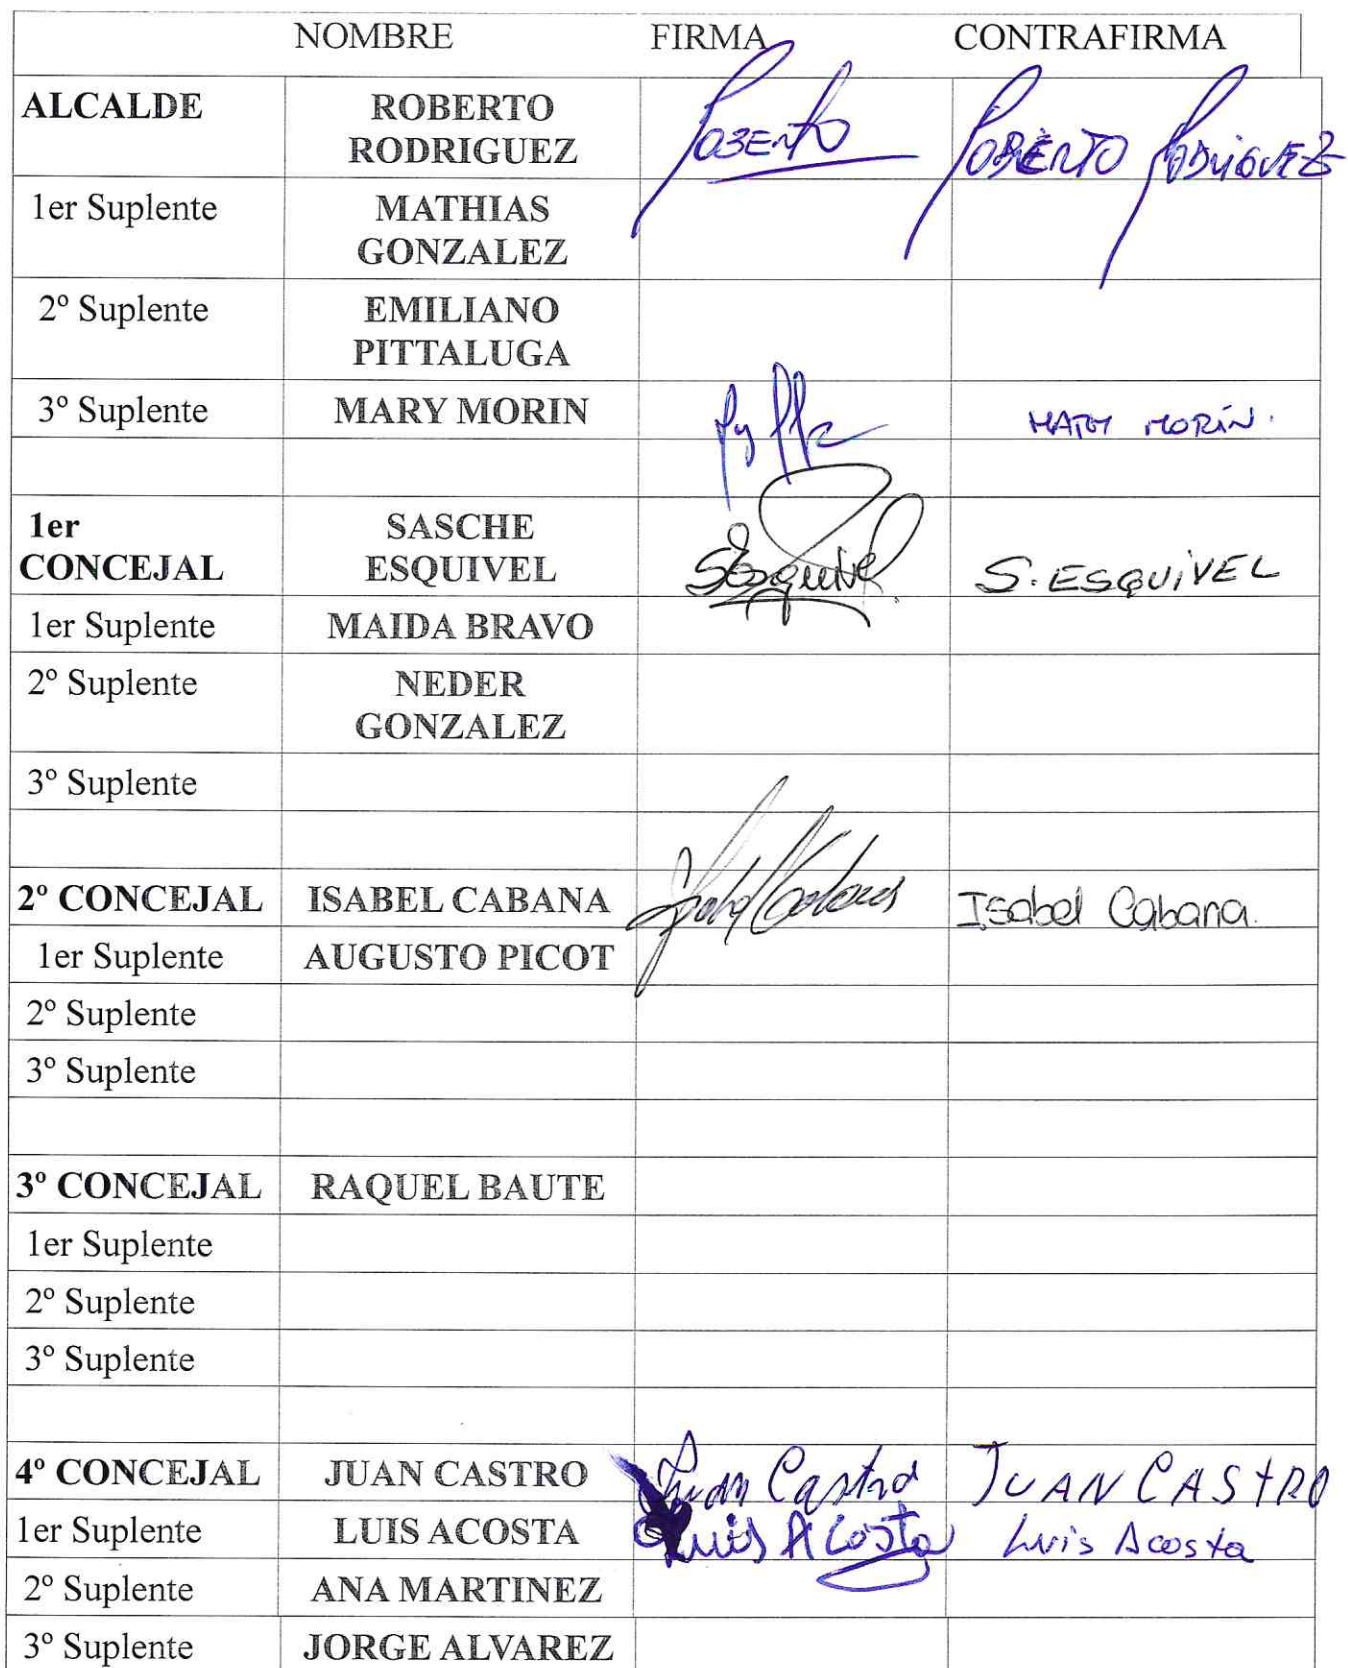 NOMBRE FIRMA CONTRAFIRMA
ALCALDE ROBERTO Roberto ROBERTO RODRIGUEZ
RODRIGUEZ
1er Suplente MATHIAS
GONZALEZ
2º Suplente EMILIANO
PITTALUGA
3º Suplente MARY MORIN MARY MORÍN.
1er SASCHE
CONCEJAL ESQUIVEL SEsquivel S. ESQUIVEL
1er Suplente MAIDA BRAVO
2º Suplente NEDER
GONZALEZ
3º Suplente
2º CONCEJAL ISABEL CABANA Isabel Cabana.
1er Suplente AUGUSTO PICOT
2º Suplente
3º Suplente
3º CONCEJAL RAQUEL BAUTE
1er Suplente
2º Suplente
3º Suplente
4º CONCEJAL JUAN CASTRO Juan Castro JUAN CASTRO
1er Suplente LUIS ACOSTA Luis Acosta Luis Acosta
2º Suplente ANA MARTINEZ
3º Suplente JORGE ALVAREZ